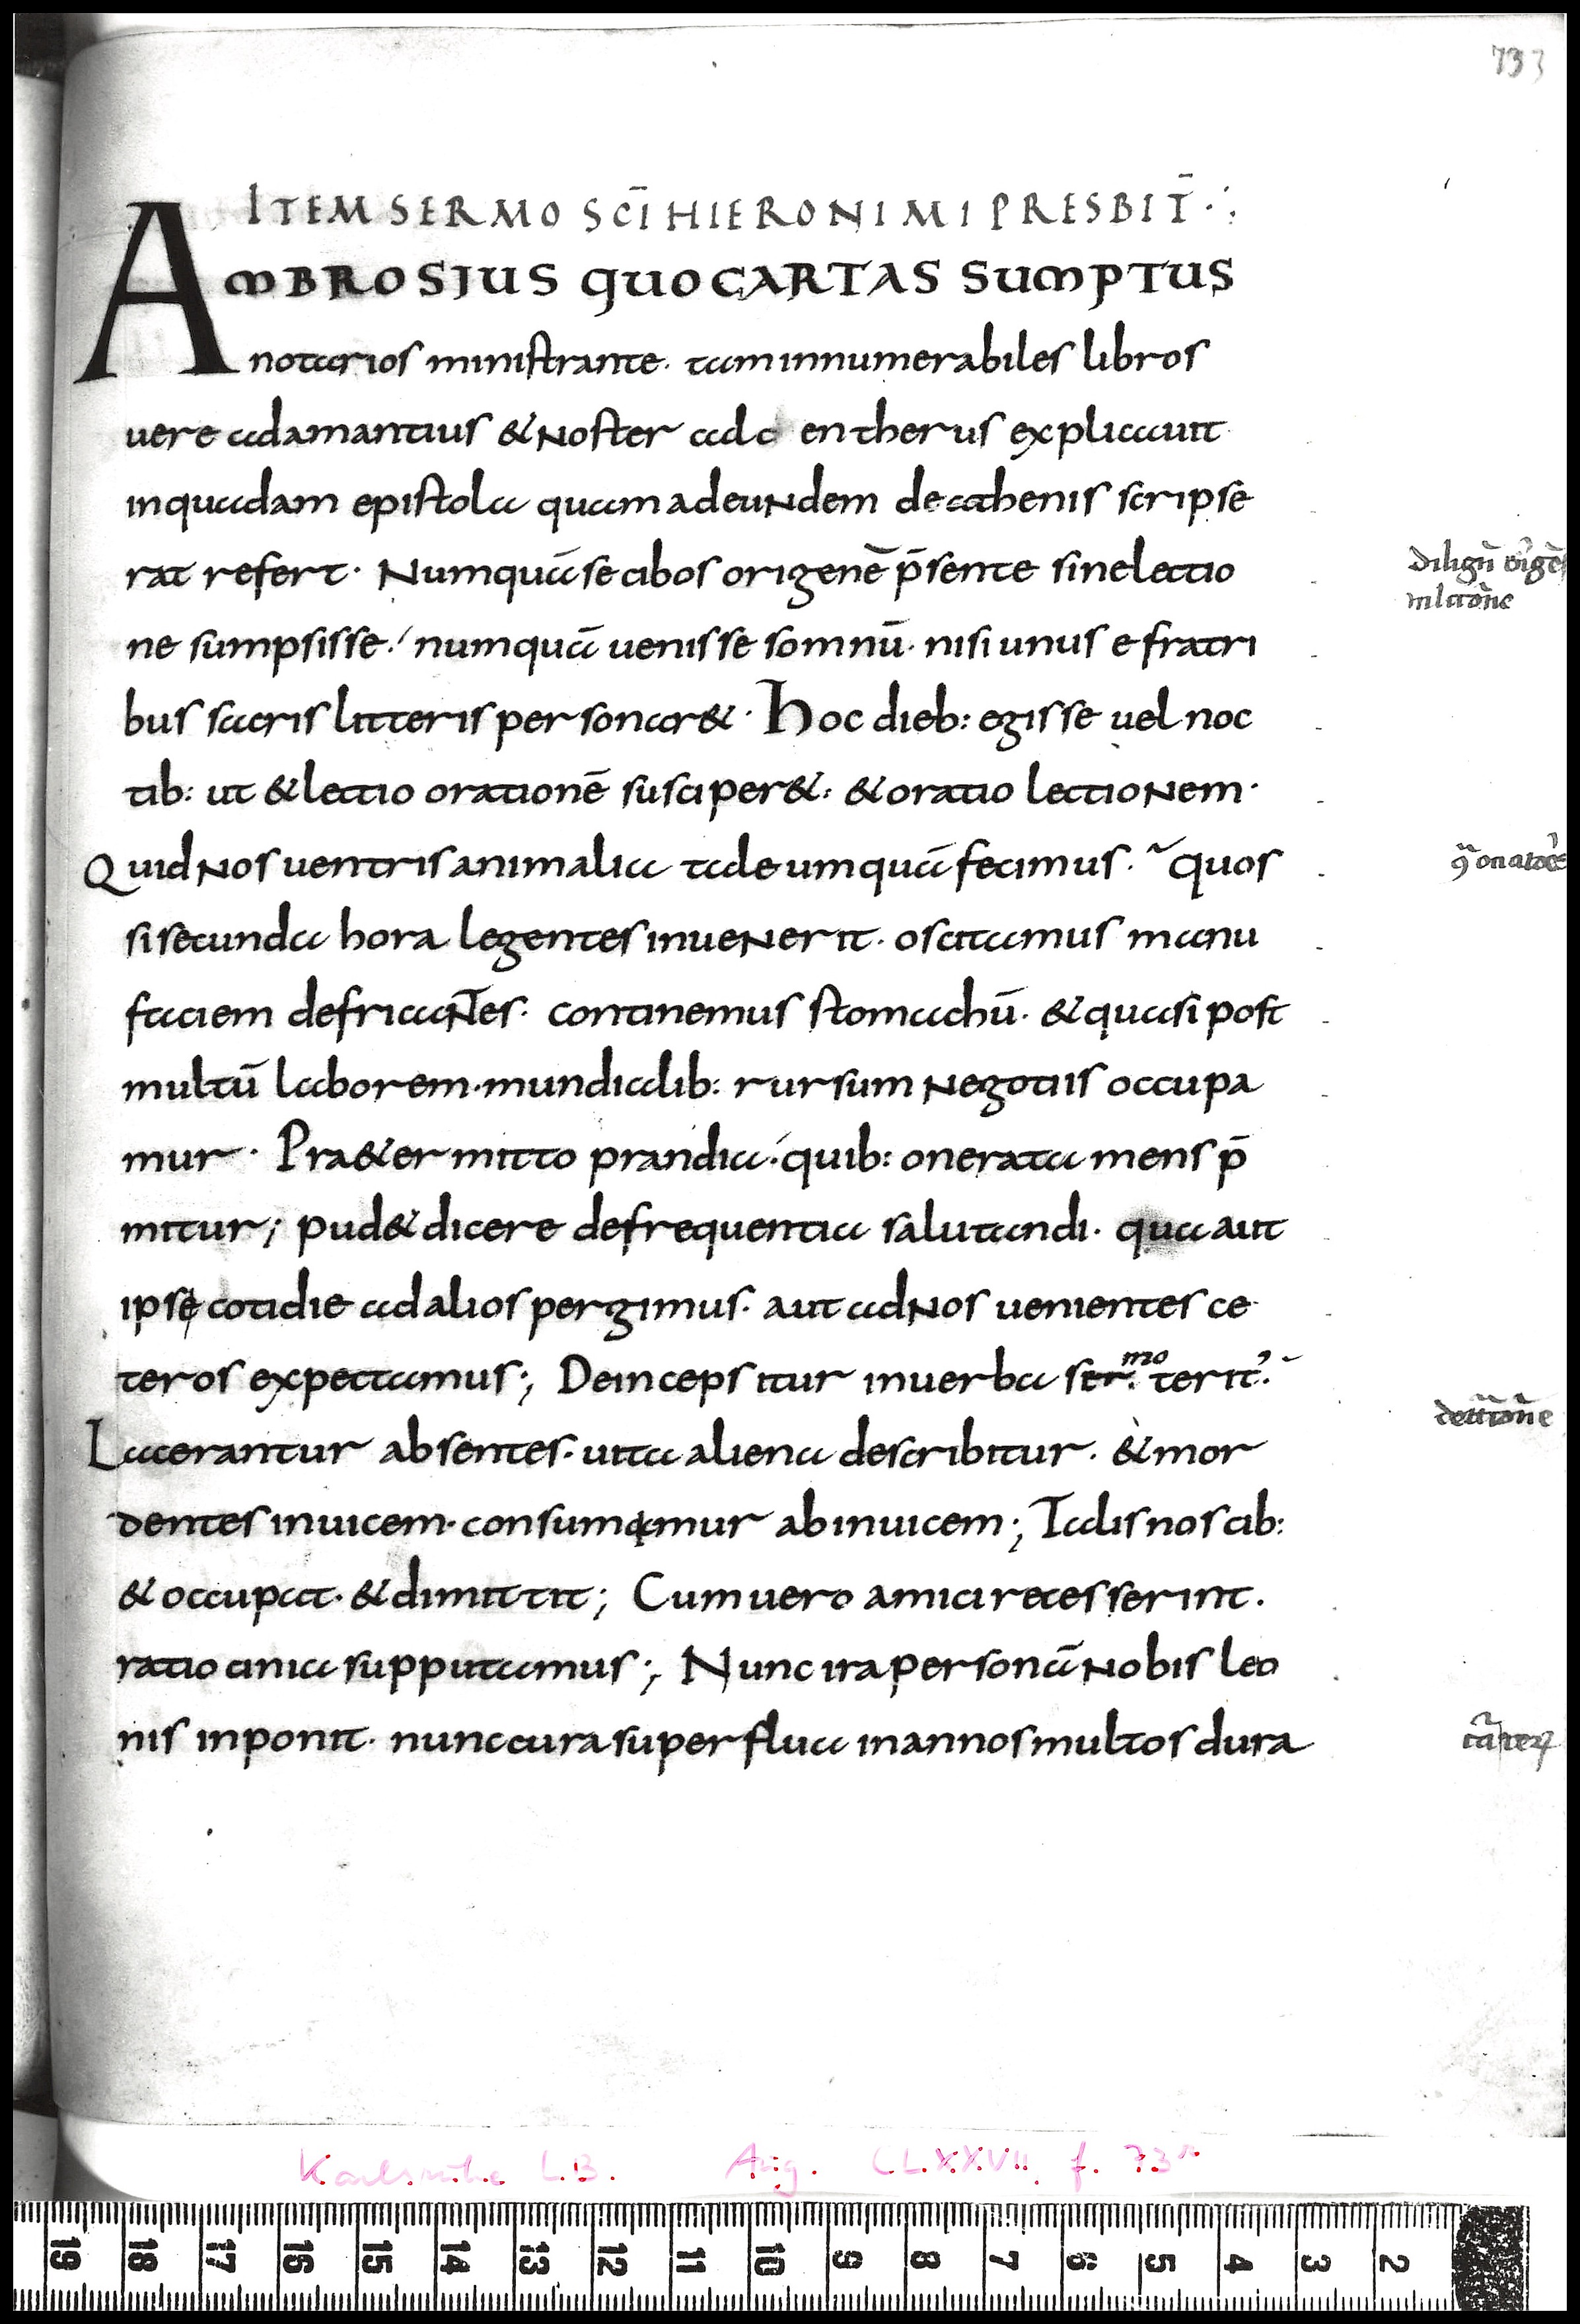 733
ITEM SERMO SC̄I HIERONIMI PRESBIT̄·:
AMBROSIUS quo CARTAS SUMPTUS
notarios ministrante· tam innumerabiles libros
uere adamantius & noster adc entherus explicauit
in quadam epistola quam ad eundem de athenis scripse
rat refert· Numquā se cibos origenē p̄sente sine lectio
ne sumpsisse· numquā uenisse somnū· nisi unus e fratri
bus sacris litteris personar&· Hoc dieb: egisse uel noc
tib: ut & lectio orationē susciper&: & oratio lectionem·
Quid nos uentris animalia tale umquā fecimus· quos
si secunda hora legentes inuenerit· oscitamus manu
faciem defricantes· continemus stomachū· & quasi post
multū laborem· mundialib: rursum negotiis occupa
mur· Pra&ermitto prandia· quib: onerata mens p̄
mitur; pud& dicere de frequentia salutandi· qua aut
ipsę cotidie ad alios pergimus· aut ad nos uenientes ce
teros expectamus; Deinceps itur in uerba ser mo terit᾽·
Lacerantur absentes· uita aliena describitur· & mor
dentes inuicem· consumamur ab inuicem; Talis nos cib:
& occupat· & dimittit; Cum uero amici recesserint·
ratiocinia supputamus; Nunc ira personā nobis leo
nis inponit· nunc cura superflua in annos multos dura
Karlsruhe L.B. Aug. CLXXVII f. 73r
19 18 17 16 15 14 13 12 11 10 9 8 7 6 5 4 3 2